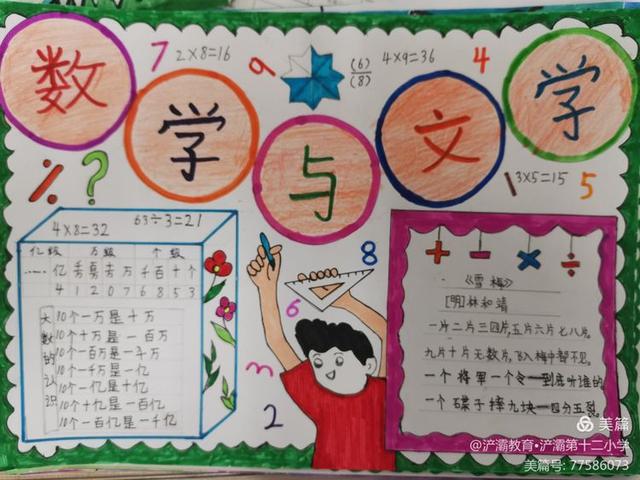 数学与文学
7
2×8=16
9
(6)
(8)
4×9=36
4
%
?
3×5=15
5
4×8=32
63÷3=21
亿级 万级 个级
…… 亿 千 百 十 万 千 百 十 个
4 1 2 0 7 6 8 5 3
大数的认识
10个一万是十万
10个十万是一百万
10个一百万是一千万
10个一千万是一亿
10个一亿是十亿
10个十亿是一百亿
10个一百亿是一千亿
8
6
3
2
+ - × ÷
《雪梅》
[明]林和靖
一片二片三四片,五片六片七八片。
九片十片无数片,飞入梅中都不见。
一个将军一个令 一到底听谁的
一个碟子摔九块一四分五裂
美篇
@浐灞教育·浐灞第十二小学
美篇号: 77586073